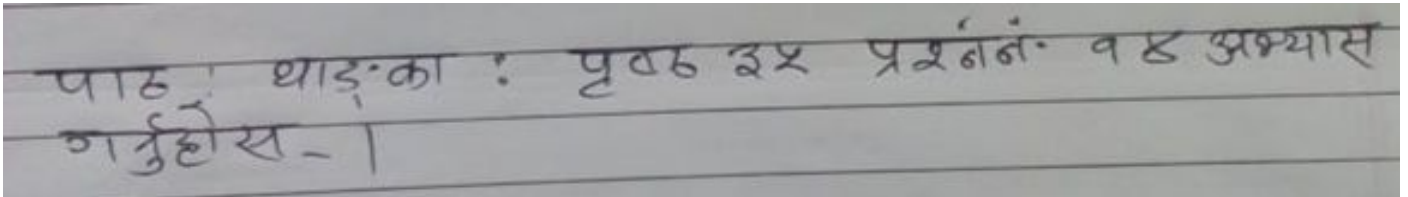 पाठ : थाङ्का : पृष्ठ ३५ प्रश्नंनं. १४ अभ्यास
गर्नुहोस- ।